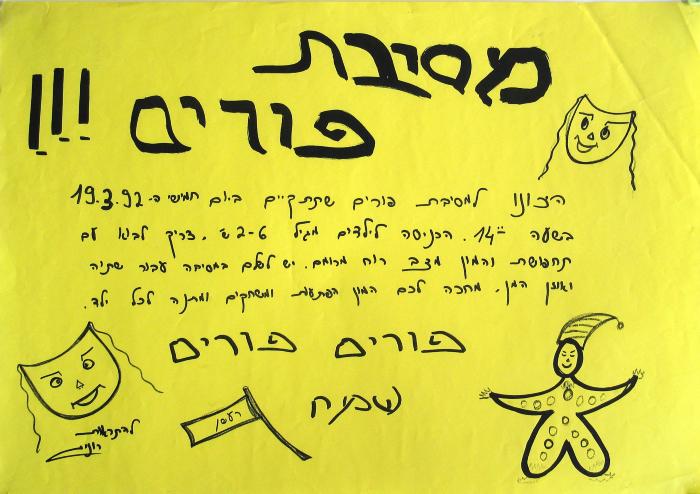 מסיבת
פורים !!!
הצונו למסיבת פורים שתתקיים ביום חמישי ה- 19.3.92
בשעה 14°°. הכניסה לילדים מגיל 2-6 ש'. צריך לבוא עם
תחפושת והמון מצב רוח מרומם. יש לשלם במסיבה עבור שתיה
ואוזן המן. מחכה לכם המון הפתעות ומשחקים ומתנה לכל ילד.
פורים פורים
שמח
רעשן
להתראות
רונית